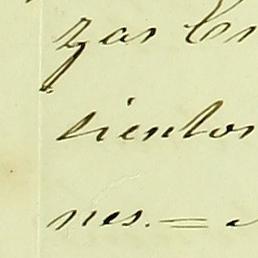 zas Es
cientos
nes. =